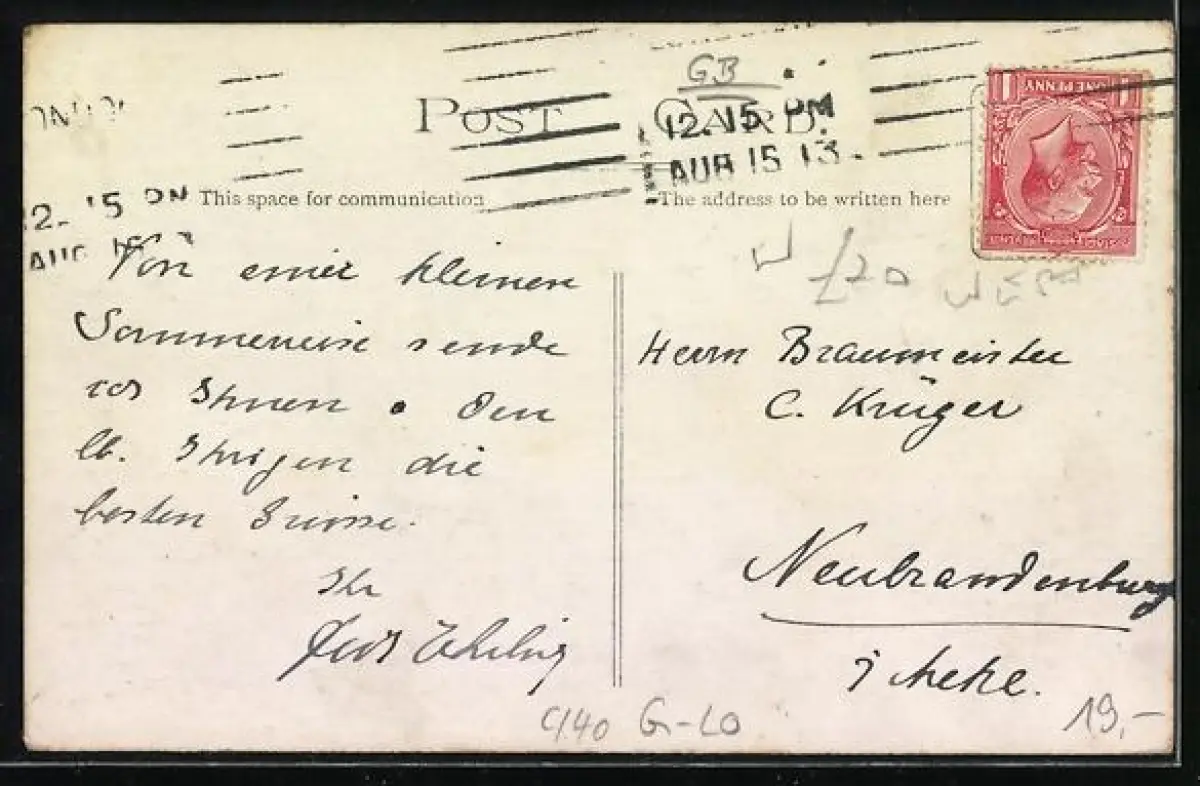 GB
POST CARD.
12. 15 PM
AUG 15 13
2. 15 PM
This space for communication
The address to be written here
ONE PENNY
Von einer kleinen
Sommerreise sende
ich Ihnen & den
lb. Ihrigen die
besten Grüsse.
Ihr
Herrn Braumeister
C. Krüger
Neubrandenburg
i/Mekl.
C140 G-LO
19,-